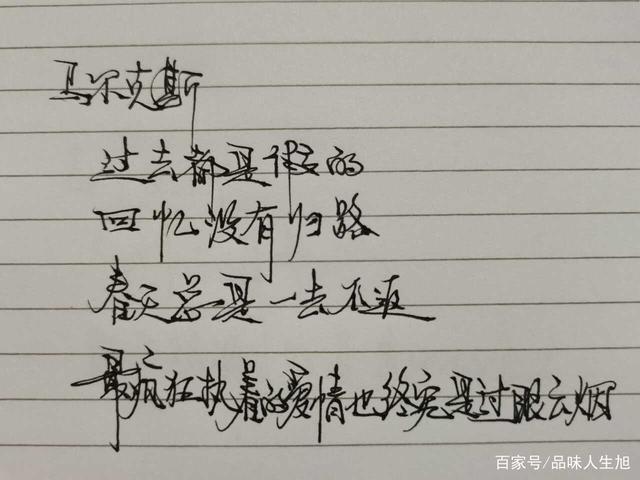 马尔克斯
过去都是假的
回忆没有归路
春天总是一去不返
最疯狂执着的爱情也终究是过眼云烟
百家号/品味人生旭